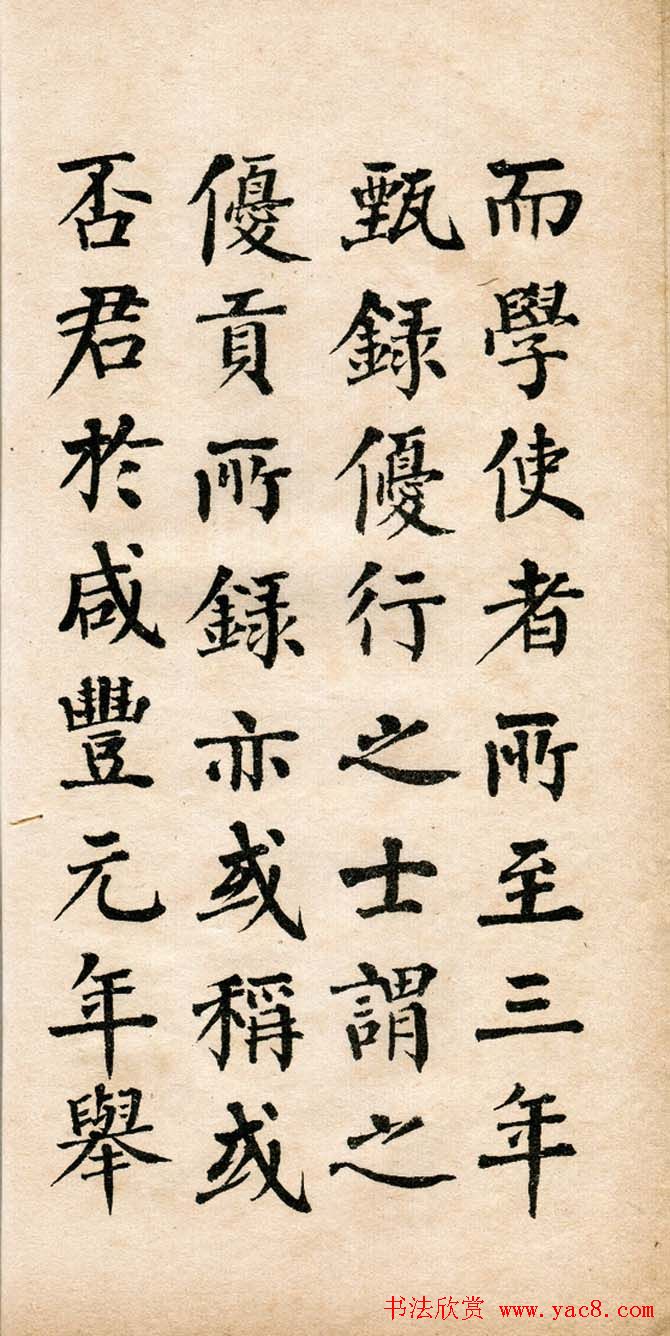 而學使者所至三年
甄録優行之士謂之
優貢所録亦或稱或
否君於咸豐元年舉
书法欣赏 www.yac8.com